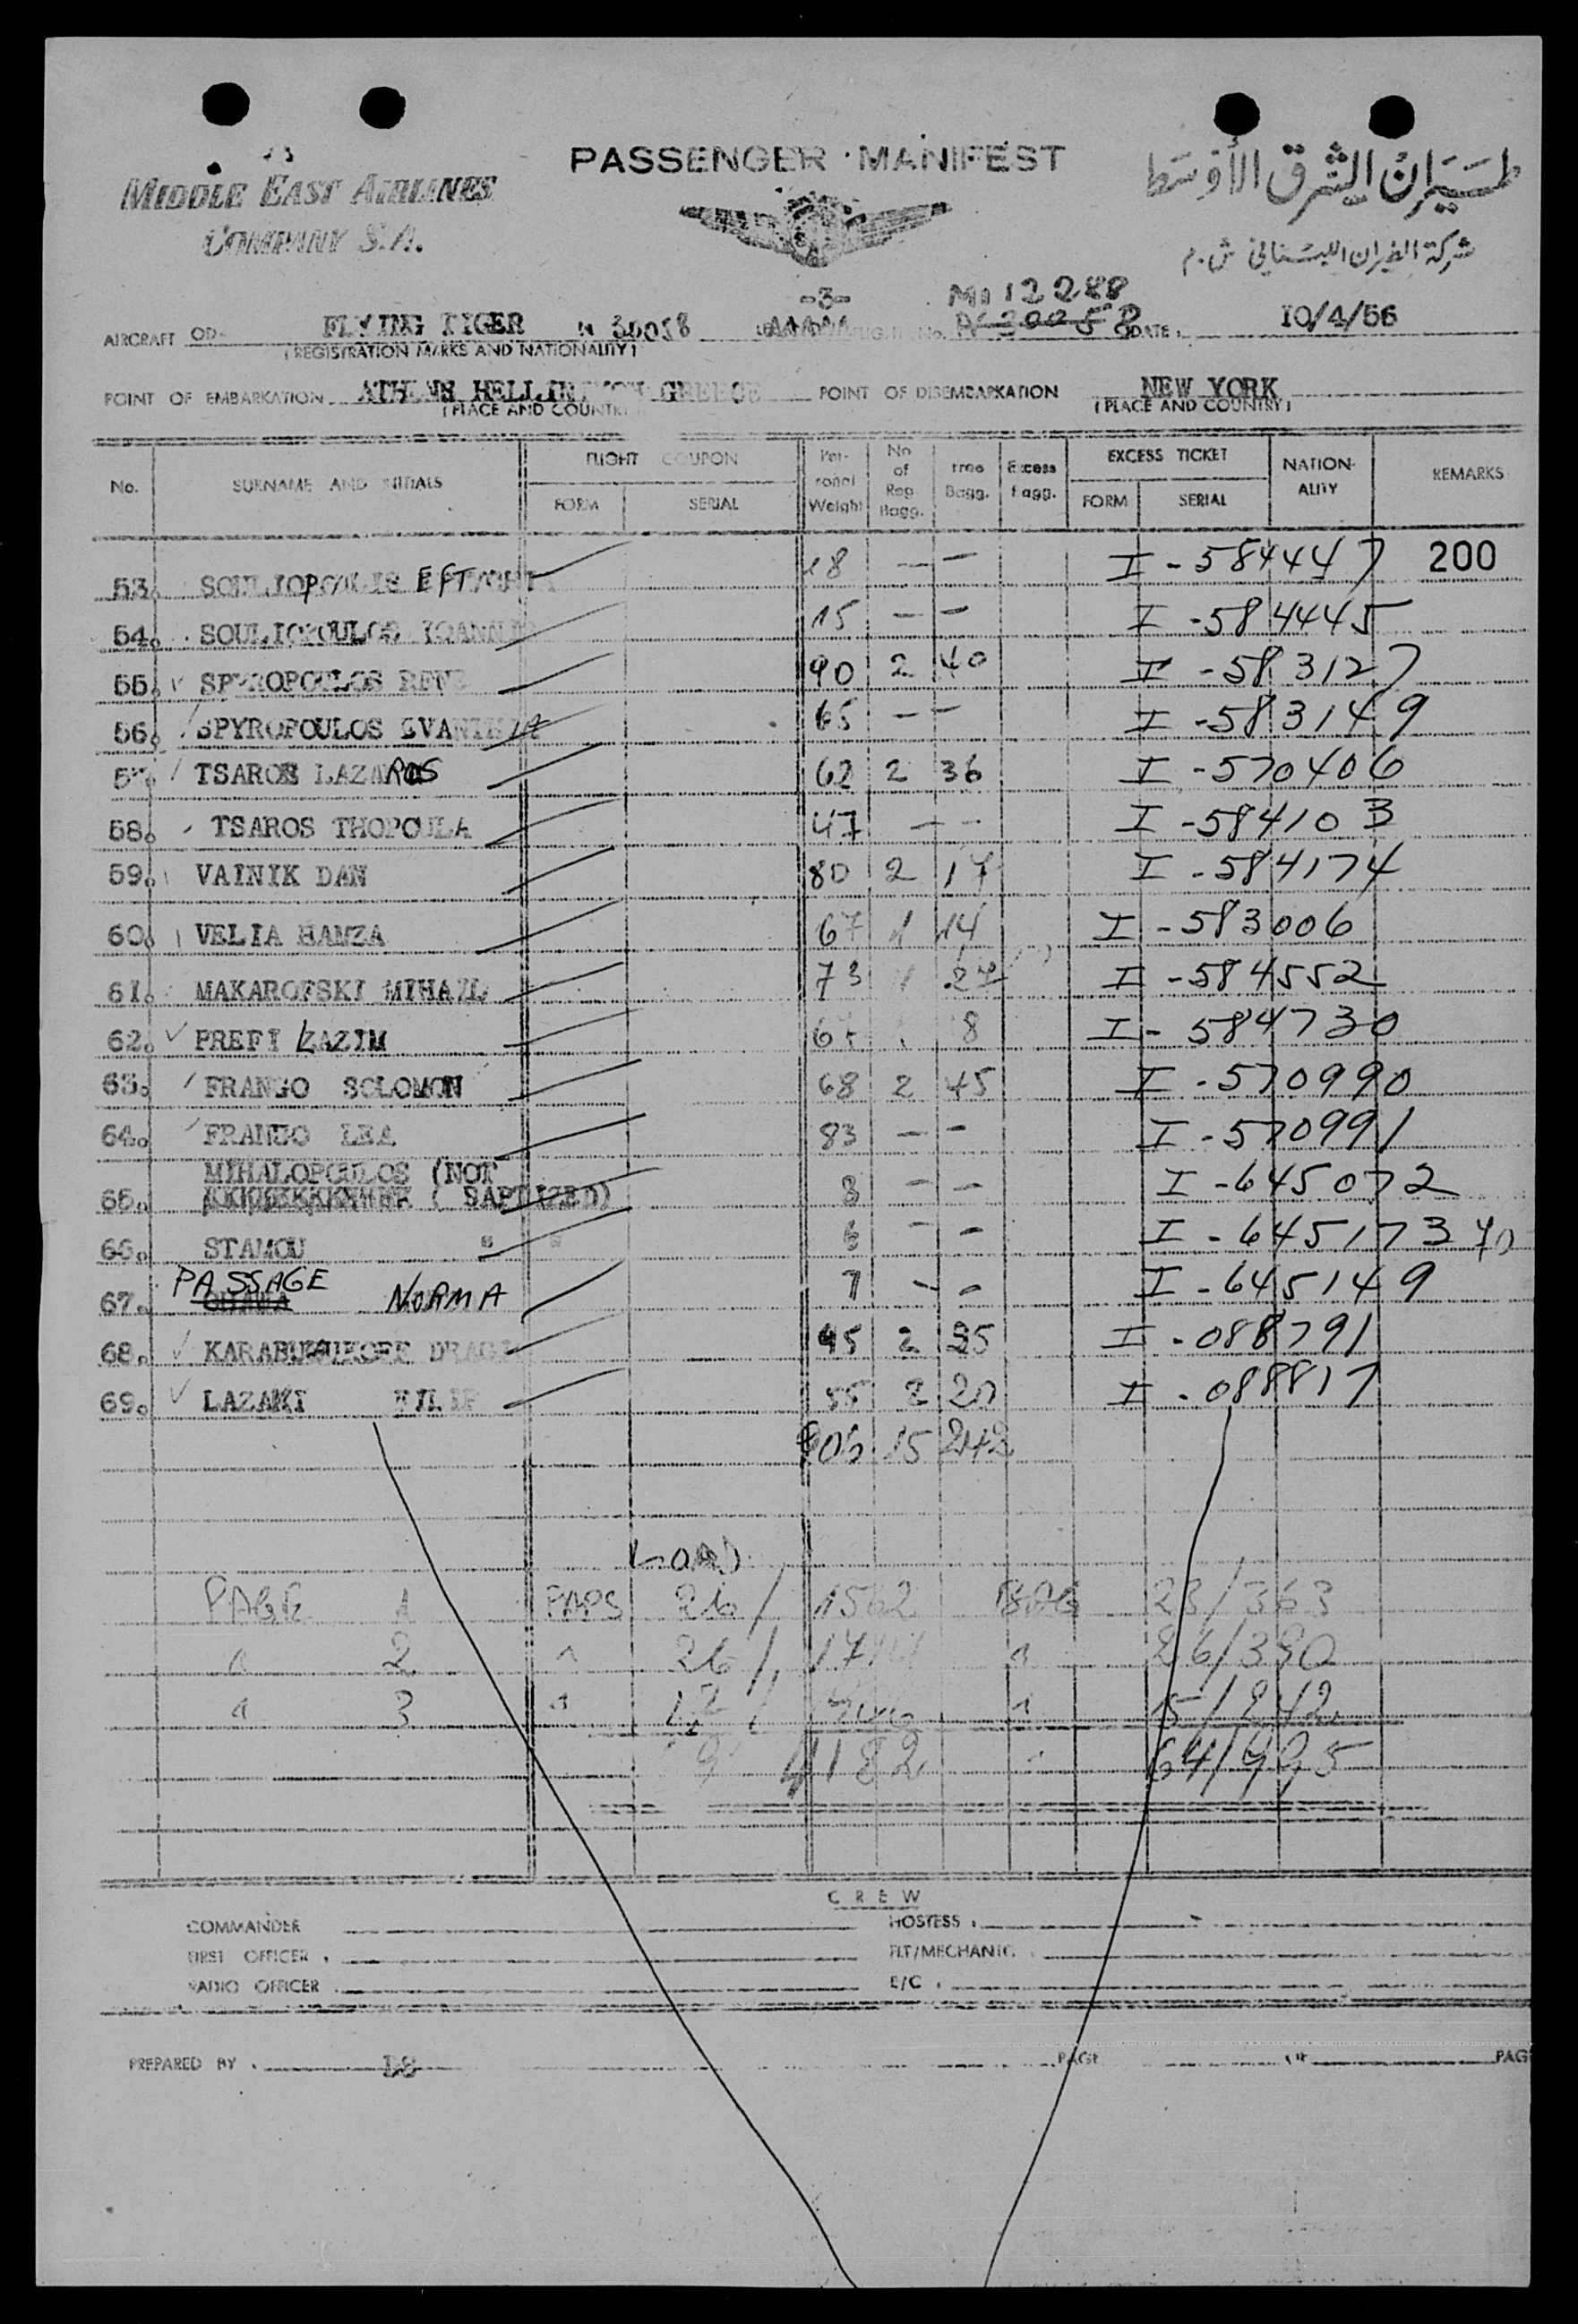 PASSENGER MANIFEST
MIDDLE EAST AIRLINES
COMPANY S.A.
طيران الشرق الأوسط
شركة الطيران اللبناني ش.م
-3-
M1 12288
AIRCRAFT OD- FLYING TIGER N 30058 No. DATE: 10/4/56
(REGISTRATION MARKS AND NATIONALITY)
POINT OF EMBARKATION ATHENS GREECE POINT OF DISEMBARKATION NEW YORK
(PLACE AND COUNTRY) (PLACE AND COUNTRY)
No. SURNAME AND INITIALS FLIGHT COUPON FORM SERIAL Personal Weight No of Reg Bagg. Free Bagg. Excess Bagg. EXCESS TICKET FORM SERIAL NATION-ALITY REMARKS
53. 18 — — I - 584447 200
54. SOULIOPOULOS 15 — — I - 584445
55. SPYROPOULOS 90 2 40 I - 583127
56. SPYROPOULOS 65 — — I - 583149
57. TSAROS LAZAROS 62 2 36 I - 570406
58. TSAROS THOPOULA 47 — — I - 584103
59. VAINIK DAN 80 2 17 I - 584174
60. VELIA HAMZA 67 1 14 I - 583006
61. MAKAROFSKI MIHAIL 73 1 27 I - 584552
62. PREFI LAZIM 8 I - 584730
63. FRANGO SOLOMON 68 2 45 I - 570990
64. FRANGO LEA 83 — — I - 570991
MIHALOPOULOS (NOT
65. ( BAPTIZED) 8 — — I - 645072
66. STAMOU " " — — I - 645173 70
PASSAGE
67. NORMA 7 — — I - 645149
68. 45 2 25 I - 088791
69. LAZAMI FILIP 55 2 20 I - 088817
906 15 242
LOAD
PAGE 1 PAPS 26/ 1562 BAG 23/363
" 2 " 26/ " 26/390
" 3 " 17/ 906 " 15/242
4182 64/995
CREW
COMMANDER HOSTESS
FIRST OFFICER FLT/MECHANIC
RADIO OFFICER E/C
PREPARED BY PAGE PAG